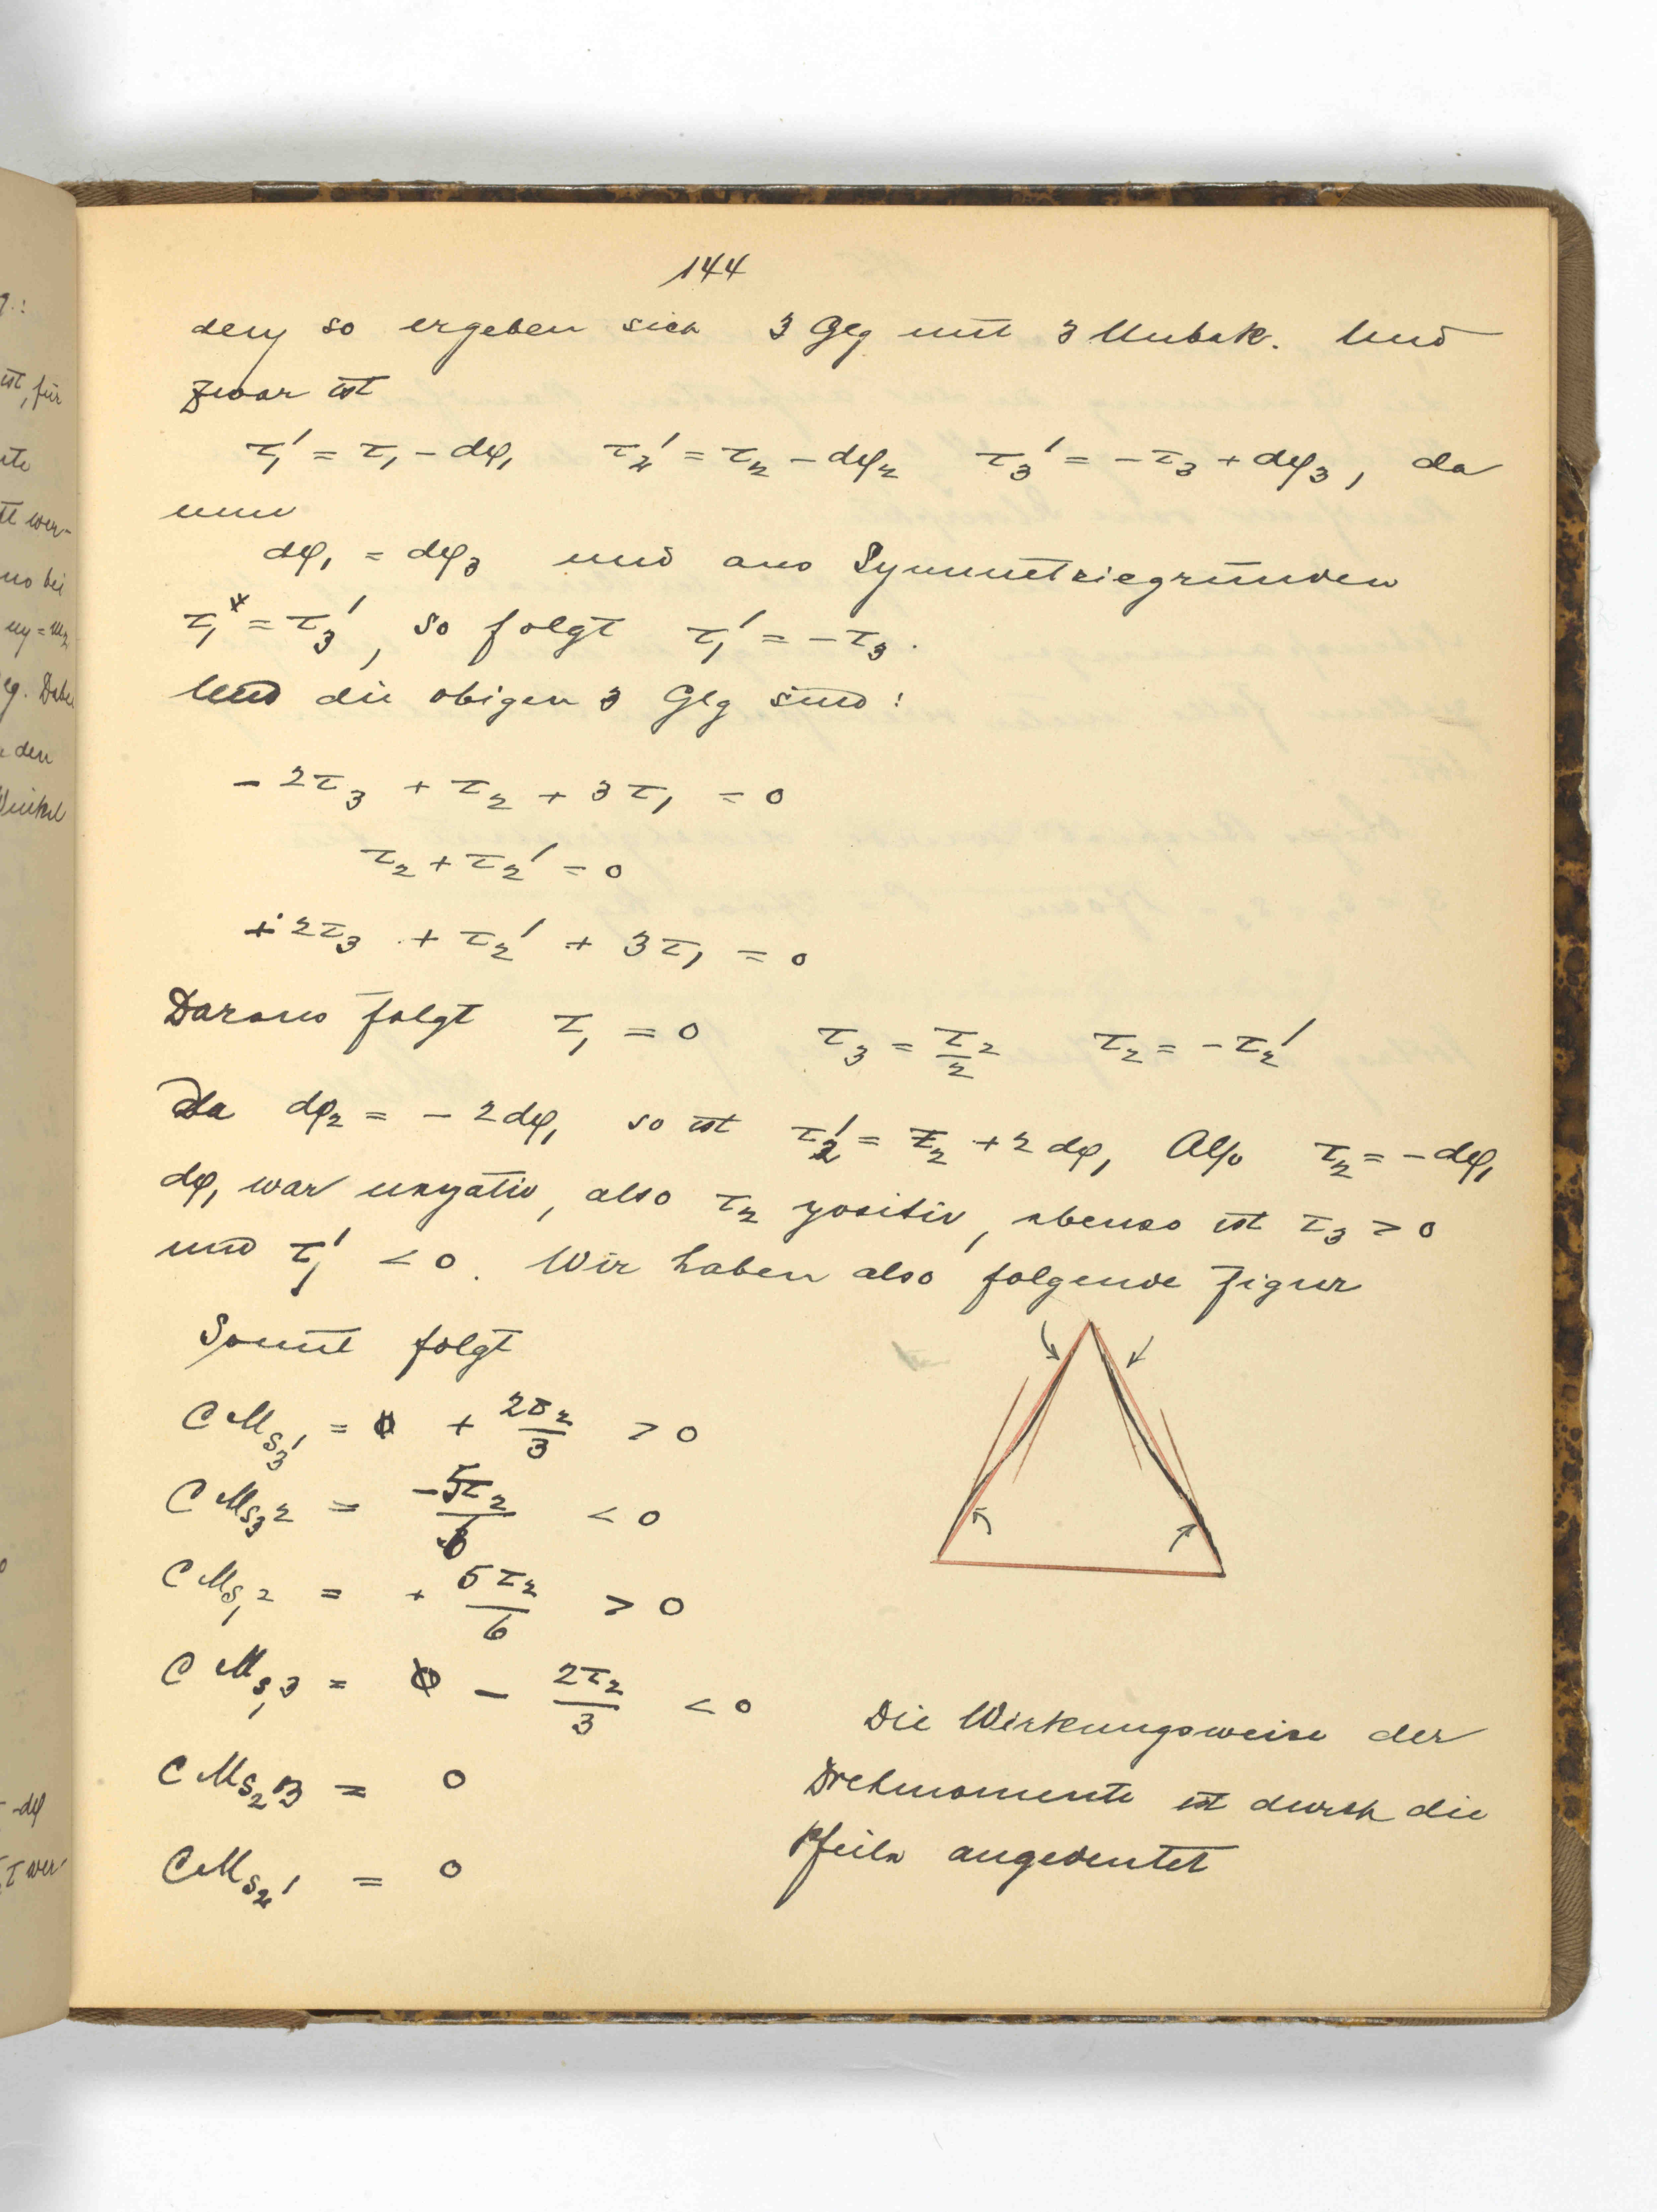 144
so ergeben sich 3 Glg mit 3 Unbek. Und
zwar ist
τ₁' = τ₁ - dφ₁ τ₂' = τ₂ - dφ₂ τ₃' = -τ₃ + dφ₃, da
nun
dφ₁ = dφ₃ und aus Symmetriegründen
τ₁ = τ₃', so folgt τ₁' = -τ₃.
Und die obigen 3 Glg sind:
- 2τ₃ + τ₂ + 3τ₁ = 0
τ₂ + τ₂' = 0
+ 2τ₃ + τ₂' + 3τ₁ = 0
Daraus folgt τ₁ = 0 τ₃ = τ₂/2 τ₂ = -τ₂'
Da dφ₂ = - 2dφ₁ so ist τ₂' = τ₂ + 2dφ₁ Also τ₂ = -dφ₁
dφ₁ war negativ, also τ₂ positiv, ebenso ist τ₃ > 0
und τ₁' < 0. Wir haben also folgende Figur
Somit folgt
C M_{S₃1} = + 2τ₂/3 > 0
C M_{S₃2} = -5τ₂/6 < 0
C M_{S₁2} = + 5τ₂/6 > 0
C M_{S₁3} = - 2τ₂/3 < 0
C M_{S₂3} = 0
C M_{S₂1} = 0
Die Wirkungsweise der
Drehmomente ist durch die
Pfeile angedeutet
ist, für
wer-
bei
den
Winkel
-dφ